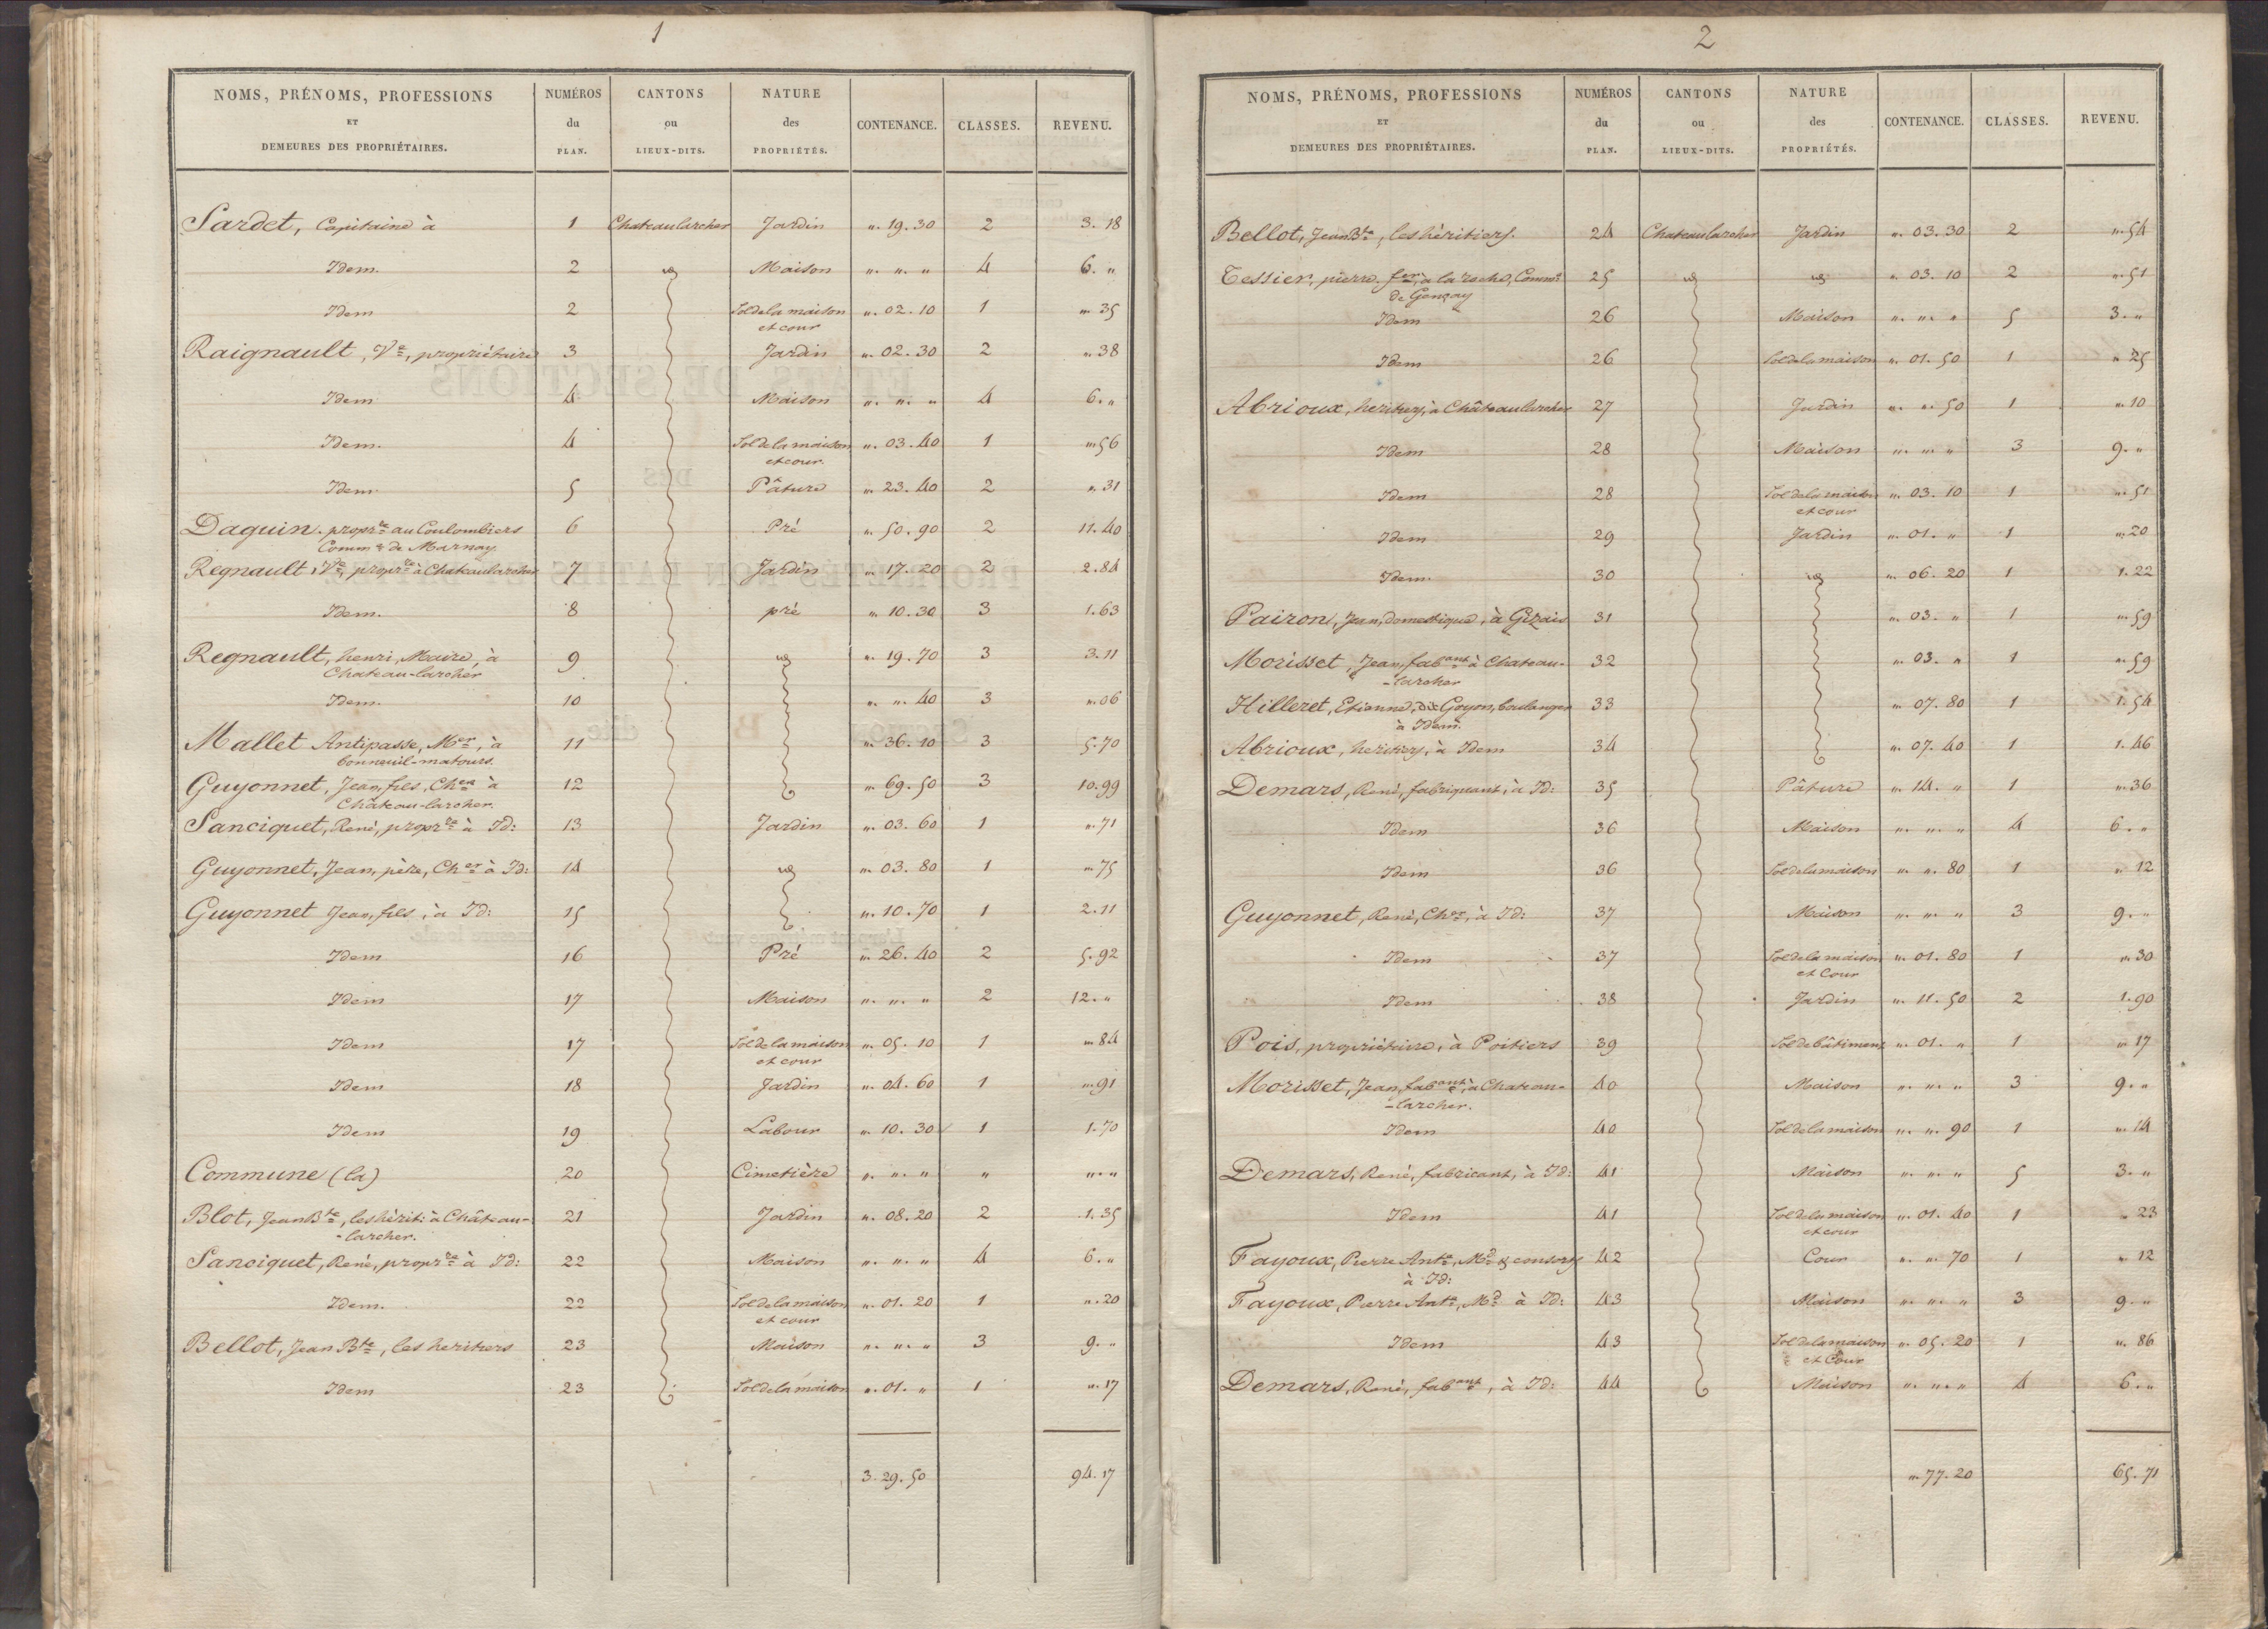 1
NOMS, PRÉNOMS, PROFESSIONS ET DEMEURES DES PROPRIÉTAIRES. NUMÉROS du PLAN. CANTONS ou LIEUX-DITS. NATURE des PROPRIÉTÉS. CONTENANCE. CLASSES. REVENU.
Sardet, Capitaine à 1 Chateaularcher Jardin ". 19. 30 2 3. 18
Idem. 2 id Maison ". ". " 4 6. "
Idem 2 Sol de la maison ". 02. 10 1 ". 35
et cour
Raignault, Ve, propriétaire 3 Jardin ". 02. 30 2 ". 38
Idem 4 Maison ". ". " 4 6. "
Idem. 4 Sol de la maison ". 03. 40 1 ". 56
et cour.
Idem 5 Pâture ". 23. 40 2 ". 31
Daquin. propre au Coulombiers 6 Pré ". 50. 90 2 11. 40
Comm e de Marnay
Regnault, Ve, propre à Chateaularcher 7 Jardin ". 17. 20 2 2. 84
Idem. 8 pré ". 10. 30 3 1. 63
Regnault, henri, Maire, à 9 id ". 19. 70 3 3. 11
Chateau-larcher
Idem. 10 ". ". 40 3 ". 06
Mallet Antipasse, Mer, à 11 ". 36. 10 3 5. 70
bonneuil-matours.
Guyonnet, Jean, fils, Cher à 12 ". 69. 50 3 10. 99
Château-larcher.
Sanciquet, René, propre à Id: 13 Jardin ". 03. 60 1 ". 71
Guyonnet, Jean, père, Cher à Id: 14 id ". 03. 80 1 ". 75
Guyonnet Jean, fils, à Id: 15 ". 10. 70 1 2. 11
Idem 16 Pré ". 26. 40 2 5. 92
Idem 17 Maison ". ". " 2 12. "
Idem 17 Sol de la maison ". 05. 10 1 ". 84
et cour
Idem 18 Jardin ". 04. 60 1 ". 91
Idem 19 Labour ". 10. 30 1 1. 70
Commune (la) 20 Cimetière ". ". " " ". "
Blot, Jean Bte, les hérit: à Château- 21 Jardin ". 08. 20 2 1. 35
-larcher.
Sanciquet, René, propre à Id: 22 Maison ". ". " 4 6. "
Idem. 22 Sol de la maison ". 01. 20 1 ". 20
et cour
Bellot, Jean Bte, les heritiers 23 Maison ". ". " 3 9. "
Idem 23 Sol de la maison ". 01. " 1 ". 17
3. 29. 50 94. 17
2
NOMS, PRÉNOMS, PROFESSIONS ET DEMEURES DES PROPRIÉTAIRES. NUMÉROS du PLAN. CANTONS ou LIEUX-DITS. NATURE des PROPRIÉTÉS. CONTENANCE. CLASSES. REVENU.
Bellot, Jean Bte, les héritiers. 24 Chateaularcher Jardin ". 03. 30 2 ". 54
Tessier, pierre, fer, à la roche, Comme 25 id id ". 03. 10 2 ". 51
de Gençay
Idem 26 Maison ". ". " 5 3. "
Idem 26 Sol de la maison ". 01. 50 1 ". 25
Abrioux, heritiers, à Châteaularcher 27 Jardin ". ". 50 1 ". 10
Idem 28 Maison ". ". " 3 9. "
Idem 28 Sol de la maison ". 03. 10 1 ". 51
et cour
Idem 29 Jardin ". 01. " 1 ". 20
Idem. 30 id ". 06. 20 1 1. 22
Pairon, Jean, domestique, à Gizais 31 ". 03. " 1 ". 59
Morisset, Jean, fabant à Chateau- 32 ". 03. " 1 ". 59
-larcher
Hilleret, Etienne, dit Goyon, boulanger 33 ". 07. 80 1 1. 54
à Idem.
Abrioux, heritiers, à Idem 34 ". 07. 40 1 1. 46
Demars, René, fabriquant, à Id: 35 Pâture ". 14. " 1 ". 36
Idem 36 Maison ". ". " 4 6. "
Idem 36 Sol de la maison ". ". 80 1 ". 12
Guyonnet, René, Cher, à Id: 37 Maison ". ". " 3 9. "
Idem 37 Sol de la maison ". 01. 80 1 ". 30
et Cour
Idem 38 Jardin ". 11. 50 2 1. 90
Pois, propriétaire, à Poitiers 39 Sol de bâtiment ". 01. " 1 ". 17
Morisset, Jean, fabant, à Chateau- 40 Maison ". ". " 3 9. "
-larcher.
Idem 40 Sol de la maison ". ". 90 1 ". 14
Demars, René, fabricant, à Id: 41 Maison ". ". " 5 3. "
Idem 41 Sol de la maison ". 01. 40 1 ". 23
et cour
Fayoux, Pierre Ante, Md & consorts 42 Cour ". ". 70 1 ". 12
à Id:
Fayoux, Pierre Ante, Md à Id: 43 Maison ". ". " 3 9. "
Idem 43 Sol de la maison ". 05. 20 1 ". 86
et Cour
Demars, René, fabant, à Id: 44 Maison ". ". " 4 6. "
". 77. 20 65. 71